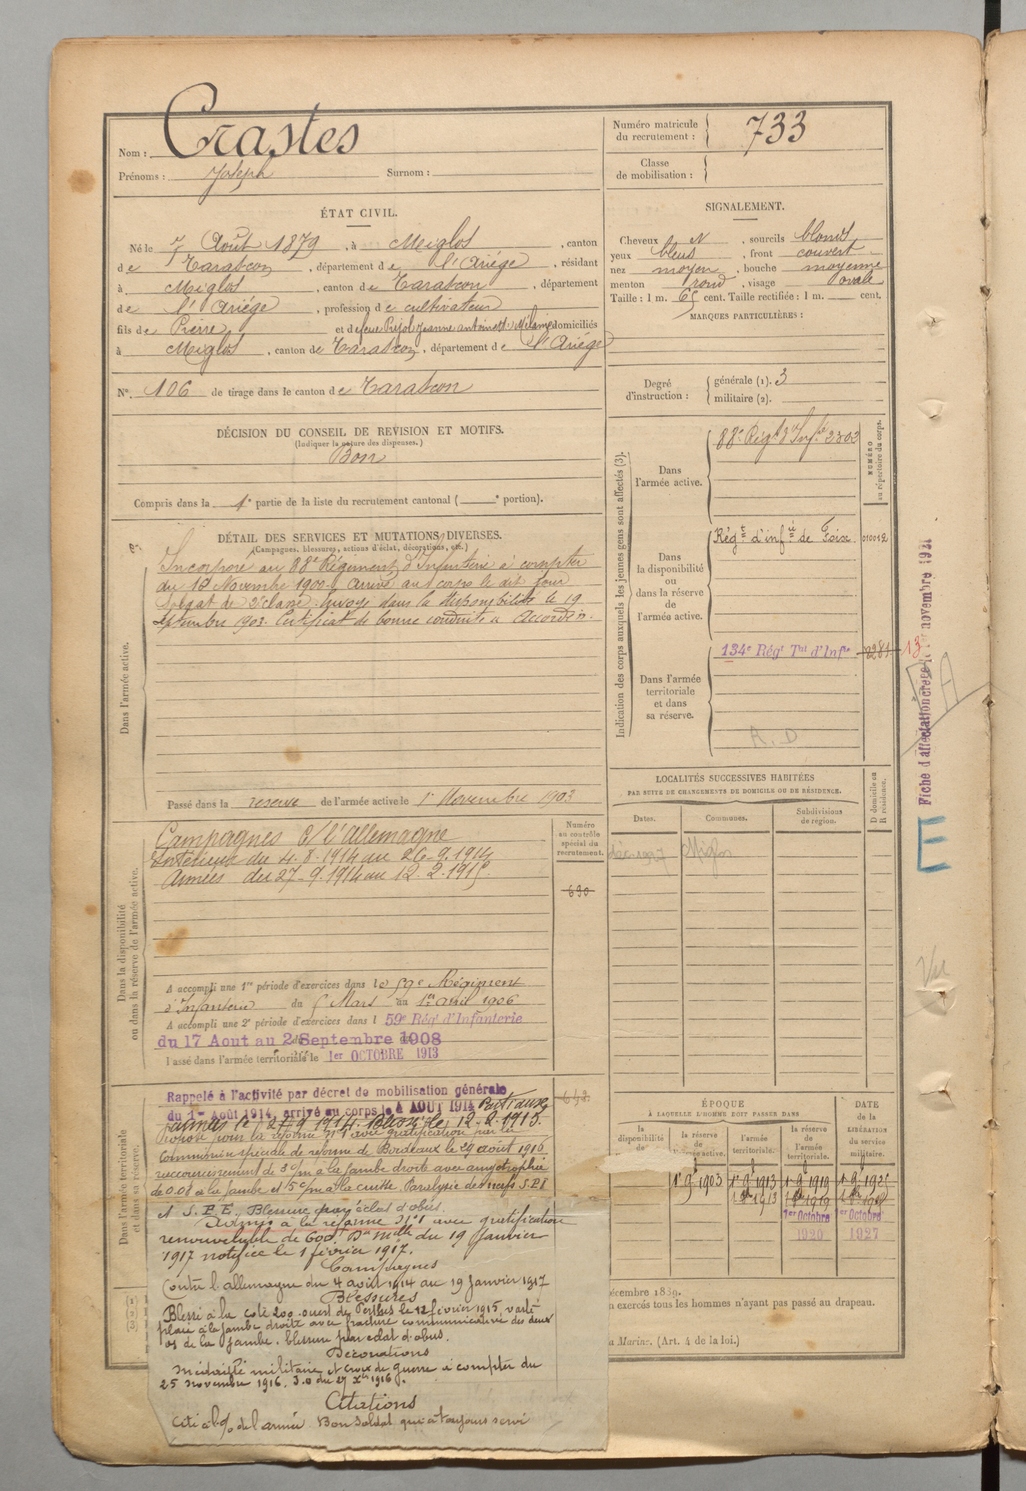 Nom : Crastes
Prénoms : Joseph Surnom :
Numéro matricule du recrutement : 733
Classe de mobilisation :
ÉTAT CIVIL.
Né le 7 Août 1879, à Miglos, canton
de Tarascon, département de l'Ariége, résidant
à Miglos, canton de Tarascon, département
de l'Ariége, profession de cultivateur
fils de Pierre et de feue Pujol Jeanne Antoinette Mélanie domiciliés
à Miglos, canton de Tarascon, département de l'Ariége
N° 106 de tirage dans le canton de Tarascon
SIGNALEMENT.
Cheveux N, sourcils blonds
yeux bleus, front couvert
nez moyen, bouche moyenne
menton rond, visage ovale
Taille : 1 m. 65 cent. Taille rectifiée : 1 m. cent.
MARQUES PARTICULIÈRES :
Degré d'instruction : générale (1). 3
militaire (2).
DÉCISION DU CONSEIL DE REVISION ET MOTIFS.
(Indiquer la nature des dispenses.)
Bon
Compris dans la 1e partie de la liste du recrutement cantonal ( e portion).
DÉTAIL DES SERVICES ET MUTATIONS DIVERSES.
(Campagnes, blessures, actions d'éclat, décorations, etc.)
Dans l'armée active.
Incorporé au 88e Régiment d'Infanterie à compter
du 16 Novembre 1900. Arrivé au corps le dit jour
Soldat de 2e classe. Envoyé dans la disponibilité le 19
septembre 1903. Certificat de bonne conduite "Accordé".
Passé dans la reserve de l'armée active le 1er Novembre 1903
Indication des corps auxquels les jeunes gens sont affectés (3).
NUMÉRO au répertoire du corps.
Dans l'armée active.
88e Régt d'Infie 2302
Dans la disponibilité ou dans la réserve de l'armée active.
Régt d'infie de Foix 010012
Dans l'armée territoriale et dans sa réserve.
134e Régt Tal d'Infie
A.D
Fiche d'affectation créée le 1er novembre 1921
E
Vu
LOCALITÉS SUCCESSIVES HABITÉES
PAR SUITE DE CHANGEMENTS DE DOMICILE OU DE RÉSIDENCE.
Dates. Communes. Subdivisions de région. D domicile ou R résidence.
Miglos
Dans la disponibilité ou dans la réserve de l'armée active.
Numéro au contrôle spécial du recrutement.
690
Campagnes c/ l'Allemagne
Intérieur du 4.8.1914 au 26.9.1914
Armées du 27.9.1914 au 12.2.1915
A accompli une 1re période d'exercices dans le 59e Régiment
d'Infanterie du 5 Mars au 1er avril 1906
A accompli une 2e période d'exercices dans l 59e Rég' d'Infanterie
du 17 Aout au 2 Septembre 1908
Passé dans l'armée territoriale le 1er OCTOBRE 1913
Dans l'armée territoriale et dans sa réserve.
Rappelé à l'activité par décret de mobilisation générale
du 1er Août 1914, arrivé au corps le 4 AOUT 1914 Parti aux
armées le 27.9.1914. Blessé le 12.2.1915.
Proposé pour la réforme N°1 avec gratification par la
Commission spéciale de réforme de Bordeaux le 29 août 1916
raccourcissement de 3 c/m à la jambe droite avec amyotrophie
de 0.08 à la jambe et 5 c/m à la cuisse. Paralysie des nerfs S.P.I
et S.P.E. Blessure par éclats d'obus.
Admis à la réforme N°1 avec gratification
renouvelable de 600f. Don mlle du 19 Janvier
1917 notifiée le 1 février 1917.
Campagnes
Contre l'allemagne du 4 août 1914 au 19 Janvier 1917
Blessures
Blessé à la cote 200 ouest de Perthes le 12 février 1915, vaste
plaie à la jambe droite avec fracture communicative des deux
os de la jambe. blessure par éclat d'obus.
Décorations
Médaille militaire et croix de guerre à compter du
25 novembre 1916. J.O du 27 Xbre 1916.
Citations
Cité à l'o/ de l'armée Bon Soldat qui a toujours servi
ÉPOQUE
À LAQUELLE L'HOMME DOIT PASSER DANS
la disponibilité la réserve de l'armée active. l'armée territoriale. la réserve de l'armée territoriale.
DATE de la LIBÉRATION du service militaire.
1er 9 1903 1er 9 1913 1er 9 1919
1er Octobre 1920 1er Octobre 1927
écembre 1889.
n exercés tous les hommes n'ayant pas passé au drapeau.
a Marine. (Art. 4 de la loi.)